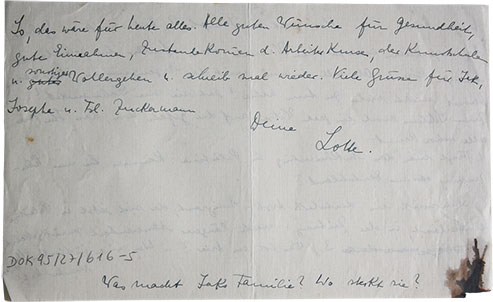 So, das wäre für heute alles. Alle guten Wünsche für Gesundheit,
gute Einnahmen, Zustandekommen d. Arbeits Kurse, der Kunstschulen
u. sonstiges Wollergehen u. schreib mal wieder. Viele Grüsse für Jsk,
Josephe u. Frl. Zuckermann
Deine
Lotte.
DOK 95/27/616-5
Was macht Jsks Familie? Wo steckt sie?